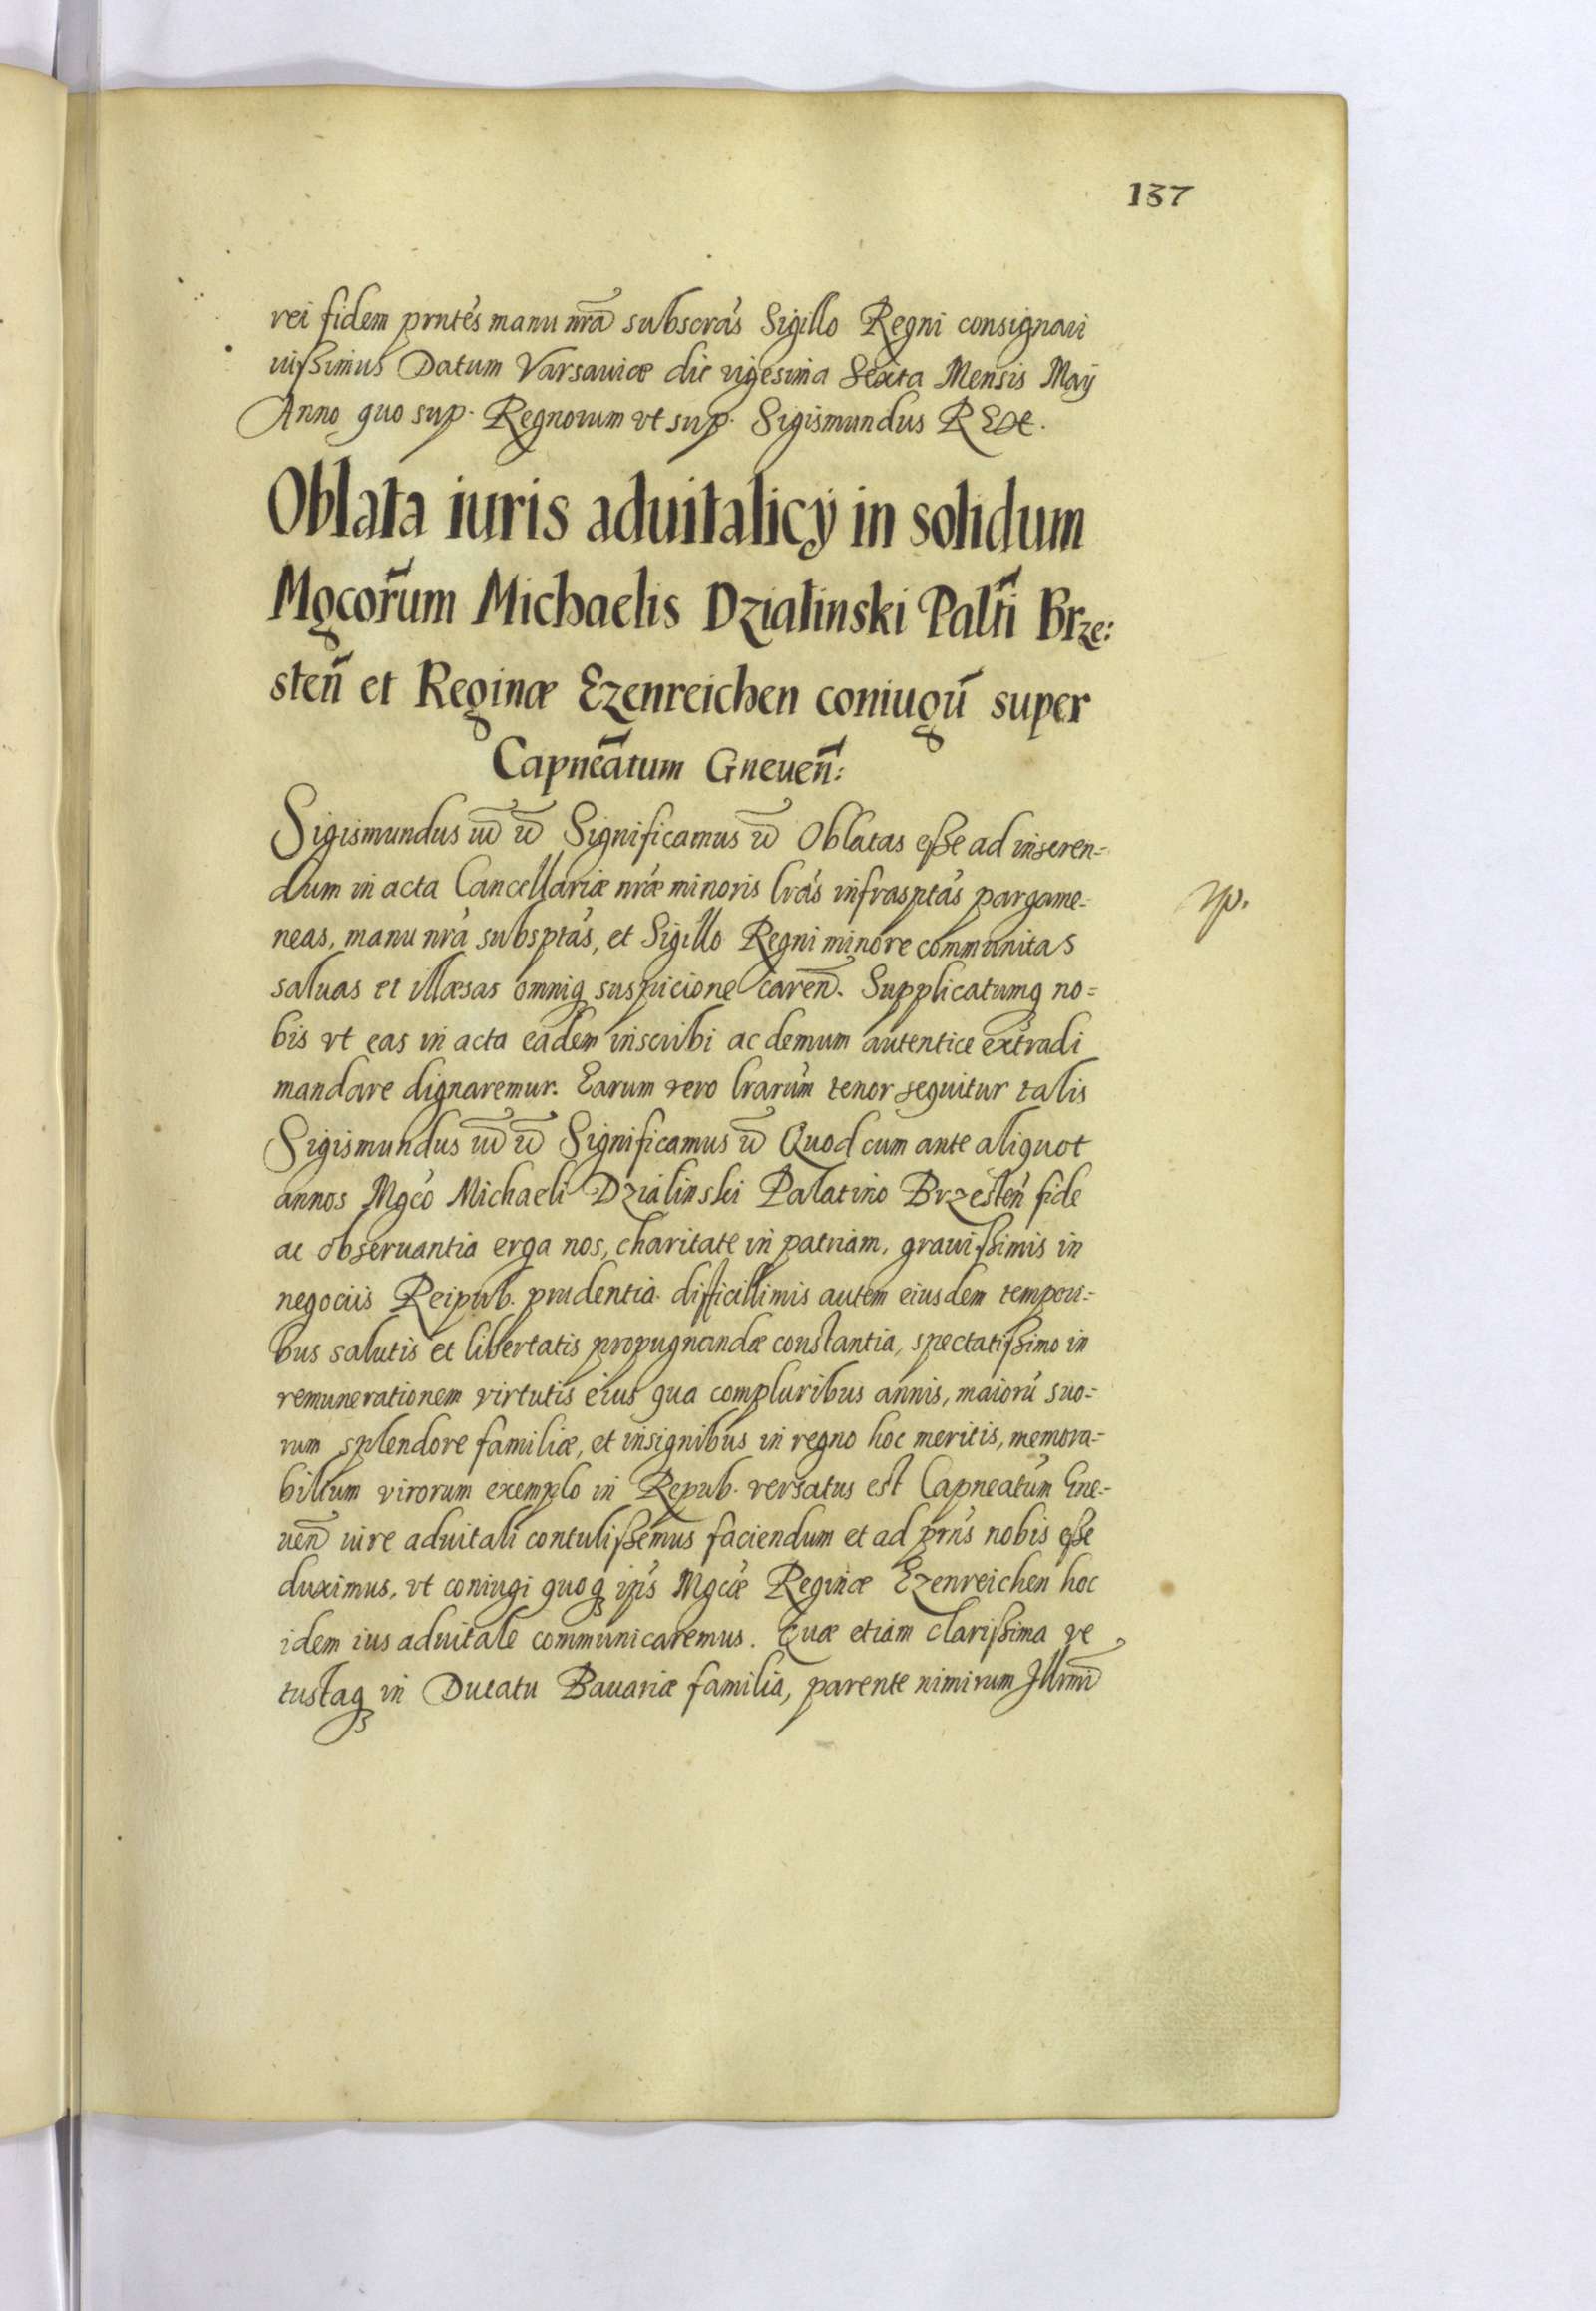 137
rei fidem prntes manu nra subscras Sigillo Regni consignari
iussimus Datum Varsauiæ die vigesima Sexta Mensis Maij
Anno quo sup. Regnorum vt sup. Sigismundus REX.
Oblata iuris aduitalicÿ in solidum
Mgcorum Michaelis Dzialinski Paltni Brze:
sten et Reginæ Ezenreichen coniugũ super
Capneatum Gneuen:
Sigismundus Significamus Oblatas esse ad inseren=
dum in acta Cancellariæ nræ minoris lras infrasptas pargame=
neas, manu nra subsptas, et Sigillo Regni minore communitas
saluas et illæsas omniq suspicione caren. Supplicatumq no=
bis vt eas in acta eadem inscribi ac demum autentice extradi
mandare dignaremur. Earum vero lrarum tenor sequitur talis
Sigismundus Significamus Quod cum ante aliquot
annos Mgco Michaeli Dzialinski Palatino Brzesten fide
ac obseruantia erga nos, charitate in patriam, grauissimis in
negociis Reipub. prudentia difficillimis autem eiusdem tempori=
bus salutis et libertatis propugnandæ constantia, spectatissimo in
remunerationem virtutis eius qua compluribus annis, maiorũ suo=
rum splendore familiæ, et insignibus in regno hoc meritis, memora=
bilium virorum exemplo in Repub. versatus est Capneatum Gne=
uen iure aduitali contulissemus faciendum et ad prns nobis esse
duximus, vt coniugi quoq ipis Mgcæ Reginæ Ezenreichen hoc
idem ius aduitale communicaremus. Quæ etiam clarissima ve
tustaq in Ducatu Bauariæ familia, parente nimirum Illrmi